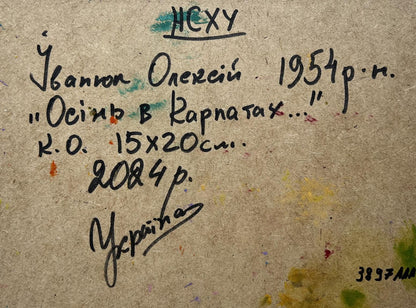 НСХУ
Іванюк Олексій 1954р.н.
"Осінь в Карпатах..."
К.О. 15х20см.
2024р.
Україна
3897АА